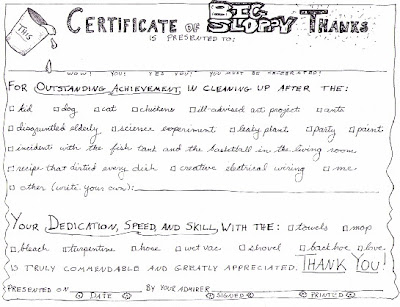 THIS
CERTIFICATE OF BIG SLOPPY THANKS
IS PRESENTED TO:
WOW! YOU! YES YOU! YOU MUST BE CELEBRATED!
FOR OUTSTANDING ACHIEVEMENT, IN CLEANING UP AFTER THE:
□ kid □ dog □ cat □ chickens □ ill-advised art project □ ants
□ disgruntled elderly □ science experiment □ leaky plant □ party □ paint
□ incident with the fish tank and the basketball in the living room
□ recipe that dirtied every dish □ creative electrical wiring □ me
□ other (write your own):
YOUR DEDICATION, SPEED, AND SKILL, WITH THE: □ towels □ mop
□ bleach □ turpentine □ hose □ wet vac □ shovel □ backhoe □ love!
IS TRULY COMMENDABLE AND GREATLY APPRECIATED. THANK YOU!
PRESENTED ON BY YOUR ADMIRER
DATE SIGNED PRINTED